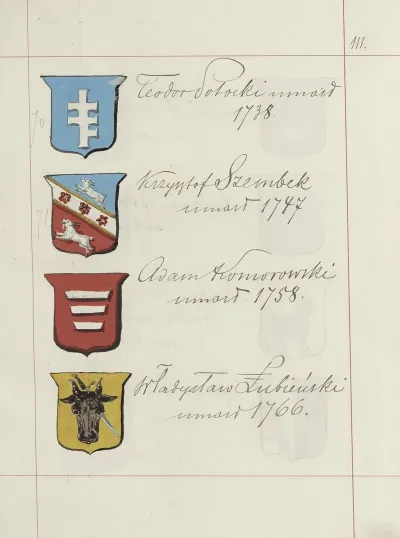 III.
Teodor Potocki umarł
1738.
Krzysztof Szembek
umarł 1747
Adam Komorowski
umarł 1758.
Władysław Łubieński
umarł 1766.